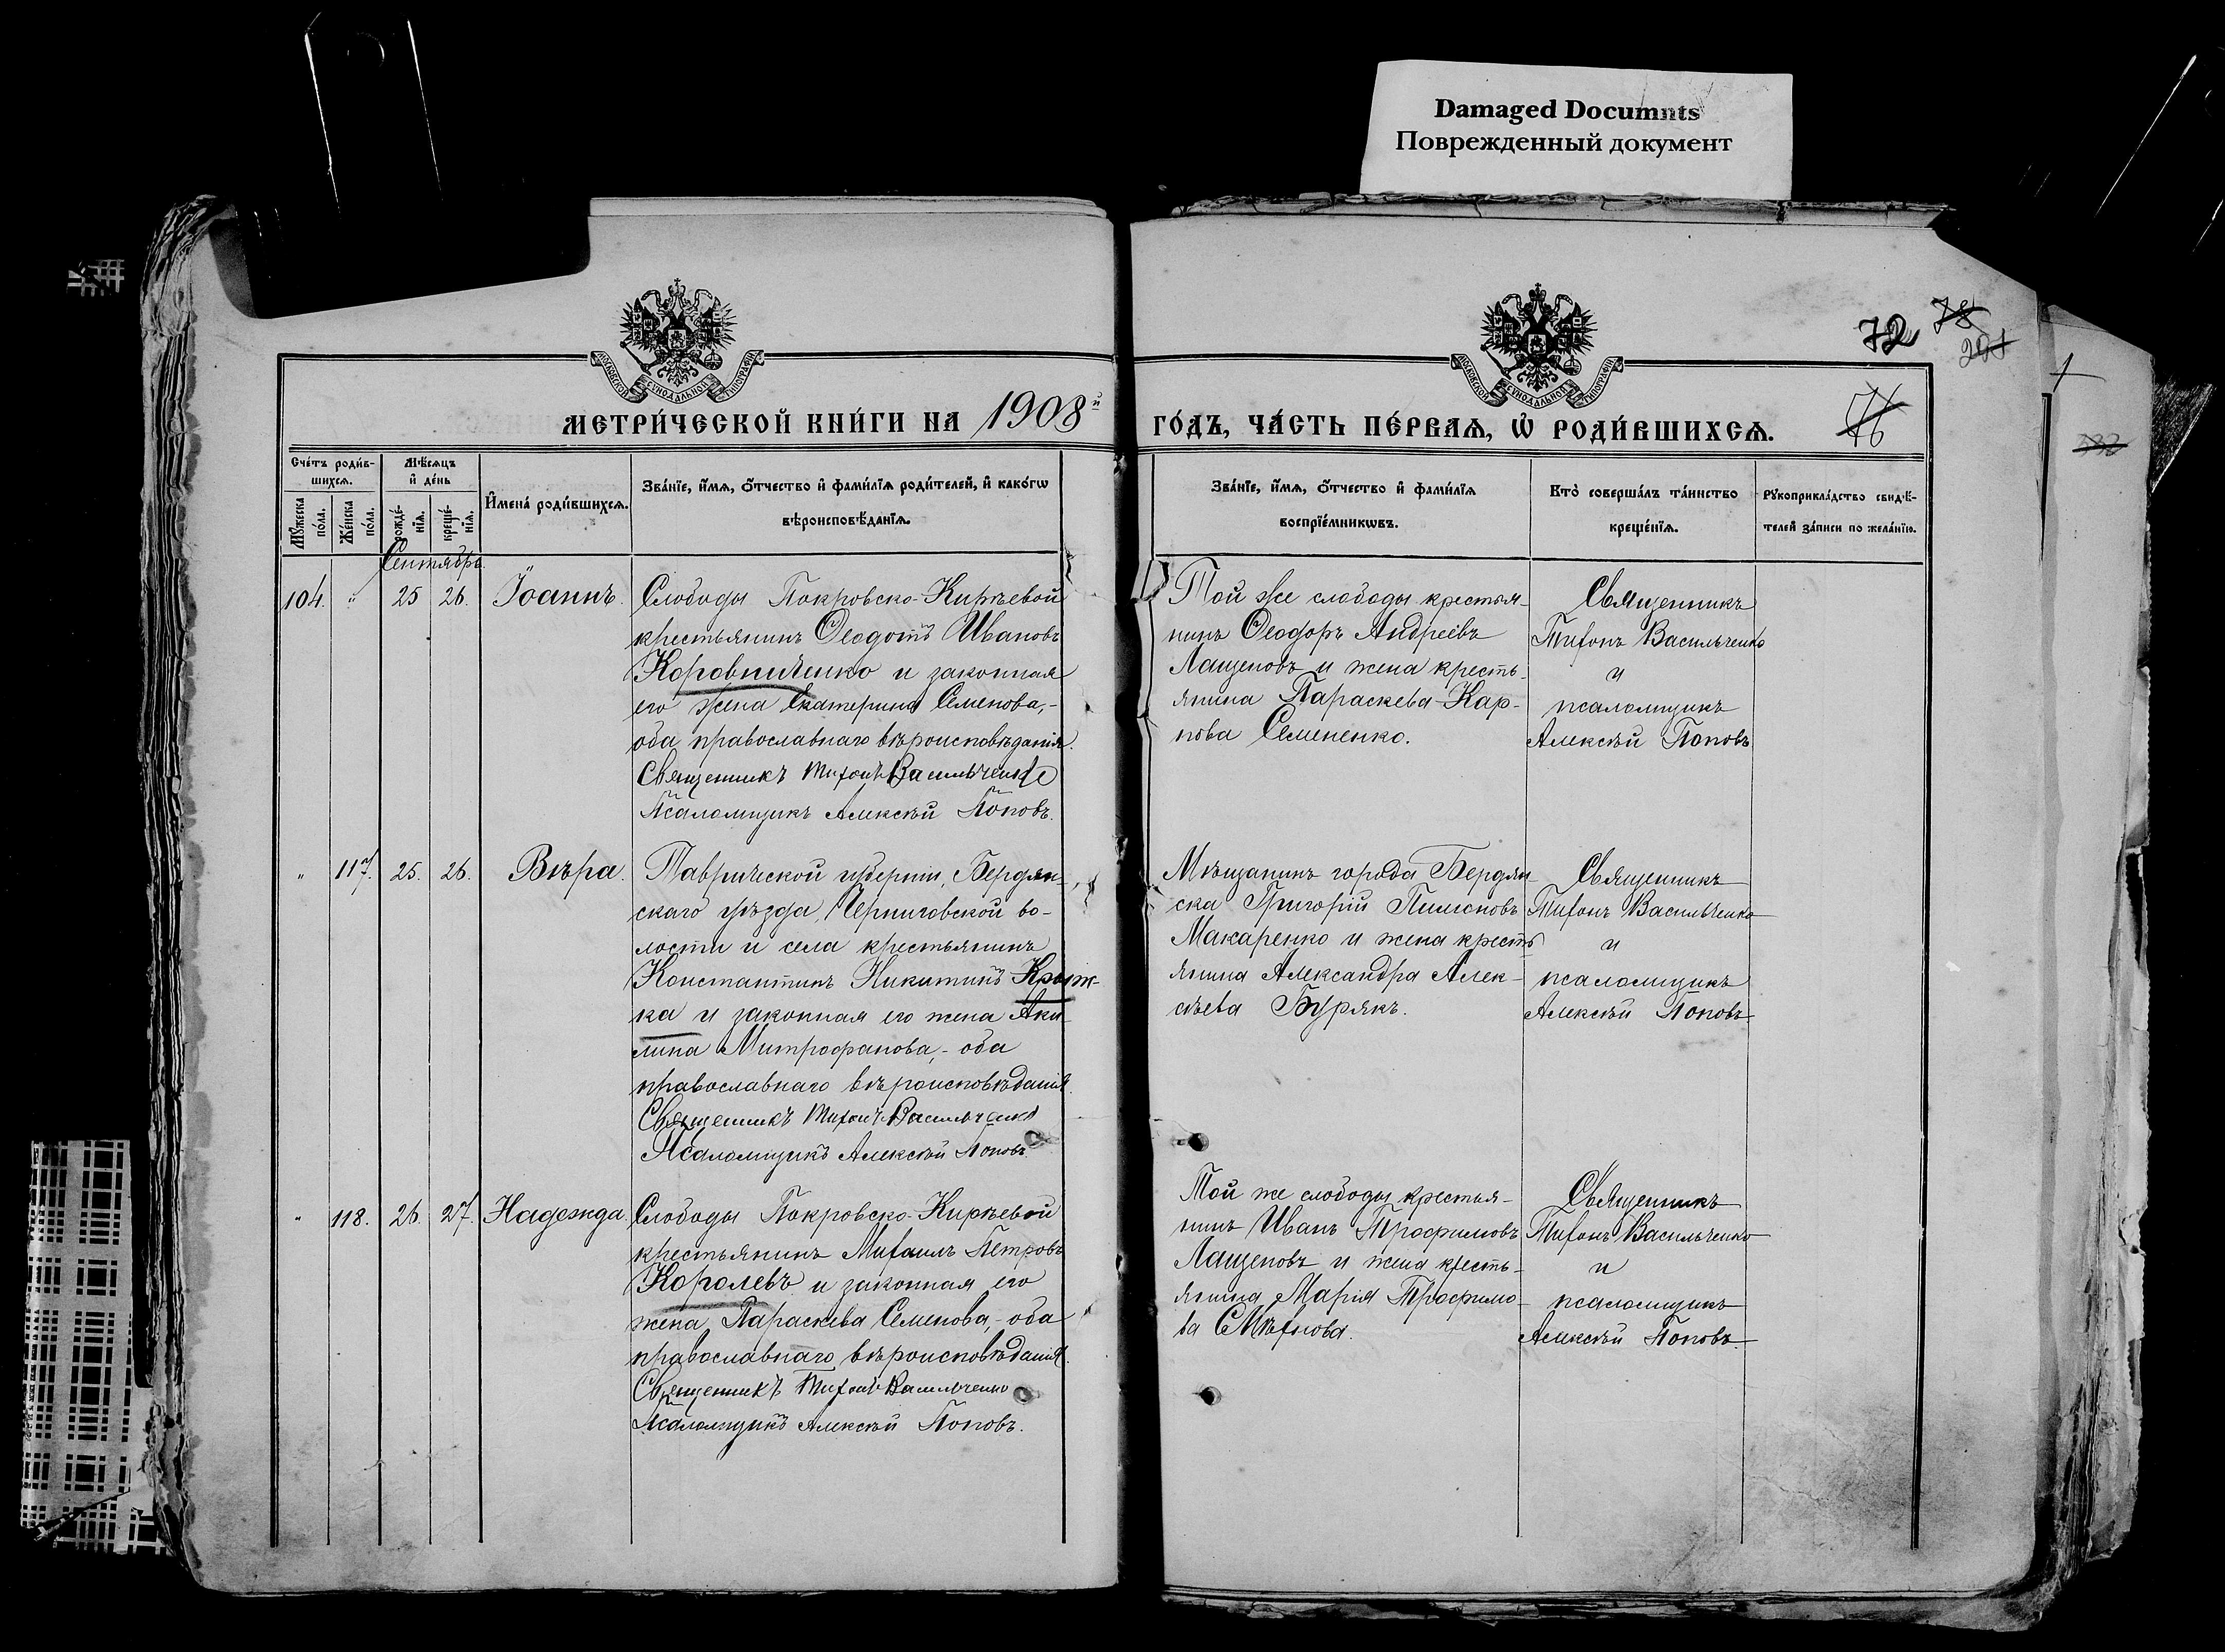 Damaged Documnts
Поврежденный документ
72
78
76
МОСКОВСКОЙ СѴНОДАЛЬНОЙ ТИПОГРАФІИ
МОСКОВСКОЙ СѴНОДАЛЬНОЙ ТИПОГРАФІИ
МЕТРИ́ЧЕСКОЙ КНИ́ГИ НА 1908й
ГО́ДЪ, ЧА́СТЬ ПЕ́РВАѦ, Ѡ҆ РОДИ́ВШИХСѦ.
Сче́тъ роди́в-
шихсѧ.
Мꙋ́жеска по́ла.
Же́нска по́ла.
Мѣ́сѧцъ и҆ де́нь
рожде́-нїѧ.
креще́-нїѧ.
И҆мена̀ роди́вшихсѧ.
Зва́нїе, и҆́мѧ, ѻ҆́тчество и҆ фами́лїѧ роди́телей, и҆ како́гѡ
вѣроисповѣ́данїѧ.
Зва́нїе, и҆́мѧ, ѻ҆́тчество и҆ фами́лїѧ
воспрїе́мникѡвъ.
Кто̀ соверша́лъ та́инство
креще́нїѧ.
Рꙋкоприкла́дство свидѣ́-
телей за́писи по жела́нїю.
Сентябрь.
104. " 25 26. Іоаннъ.
Слободы Покровско-Кирѣевой
крестьянинъ Ѳеодотъ Ивановъ
Коровниченко и законная
его жена Екатерина Семенова,-
оба православнаго вѣроисповѣданія.
Священникъ Тихонъ Васильченко
Псаломщикъ Алексѣй Поповъ.
Той же слободы крестья-
нинъ Ѳеодоръ Андреевъ
Лащеновъ и жена кресть-
янина Параскева Кар-
пова Семененко.
Священникъ
Тихонъ Васильченко
и
псаломщикъ
Алексѣй Поповъ
" 117. 25. 26. Вѣра.
Таврической губерніи, Бердян-
скаго уѣзда, Черниговской во-
лости и села крестьянинъ
Константинъ Никитинъ Крыж-
ка и законная его жена Аки-
лина Митрофанова,- оба
православнаго вѣроисповѣданія.
Священникъ Тихонъ Васильченко
Псаломщикъ Алексѣй Поповъ.
Мѣщанинъ города Бердян-
ска Григорій Пименовъ
Макаренко и жена кресть
янина Александра Алек-
сѣева Бурякъ.
Священникъ
Тихонъ Васильченко
и
псаломщикъ
Алексѣй Поповъ
" 118. 26. 27. Надежда.
Слободы Покровско-Кирѣевой
крестьянинъ Михаилъ Петровъ
Королевъ и законная его
жена Параскева Семенова,- оба
православнаго вѣроисповѣданія.
Священникъ Тихонъ Васильченко
Псаломщикъ Алексѣй Поповъ.
Той же слободы крестья-
нинъ Иванъ Трофимовъ
Лащеновъ и жена кресть-
янина Марія Трофимо-
ва Смѣхнова.
Священникъ
Тихонъ Васильченко
и
псаломщикъ
Алексѣй Поповъ.